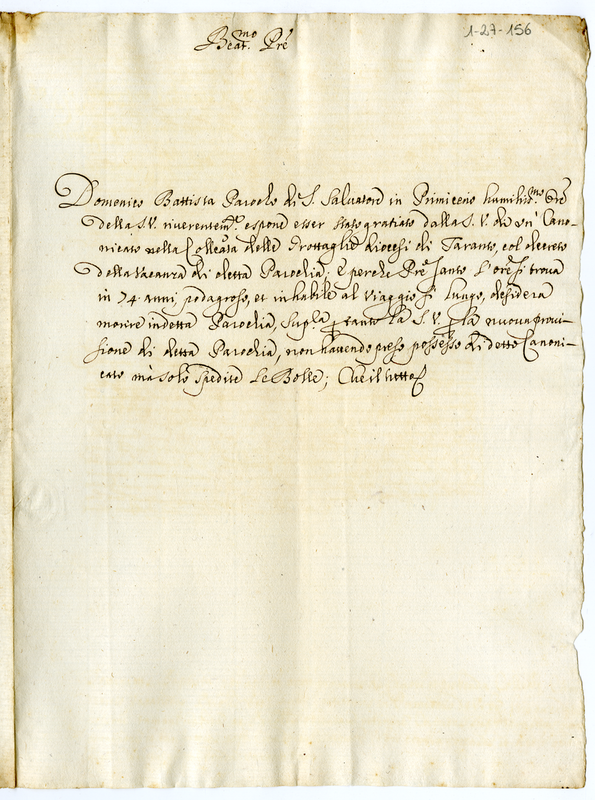 Beat.mo Pre
1-27-156
Domenico Battista Parocho di S. Salvatore in Primicerio humiliss.mo Ore
della S.V. riverentem.te espone esser stato gratiato dalla S. V. di un' Cano-
nicato nella Colleg.ta delle Grottaglie diocesi di Taranto, col decreto
della Vacanza di detta Parochia; E perche Pre Santo L'ore si trova
in 74 anni, podagroso, et inhabile al viaggio si lungo, desidera
morire in detta Parochia, supp.ca p tanto la S. V. p la nuova provi-
sione di detta Parochia, non havendo preso possesso di detto Canoni-
cato mà solo spedite Le Bolle; Che il tutto